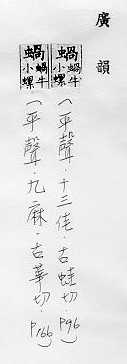 廣韻
蝸 蝸牛小螺
(平聲·十三佳·古蛙切·P96)
蝸 蝸牛小螺
(平聲·九麻·古華切·P166)